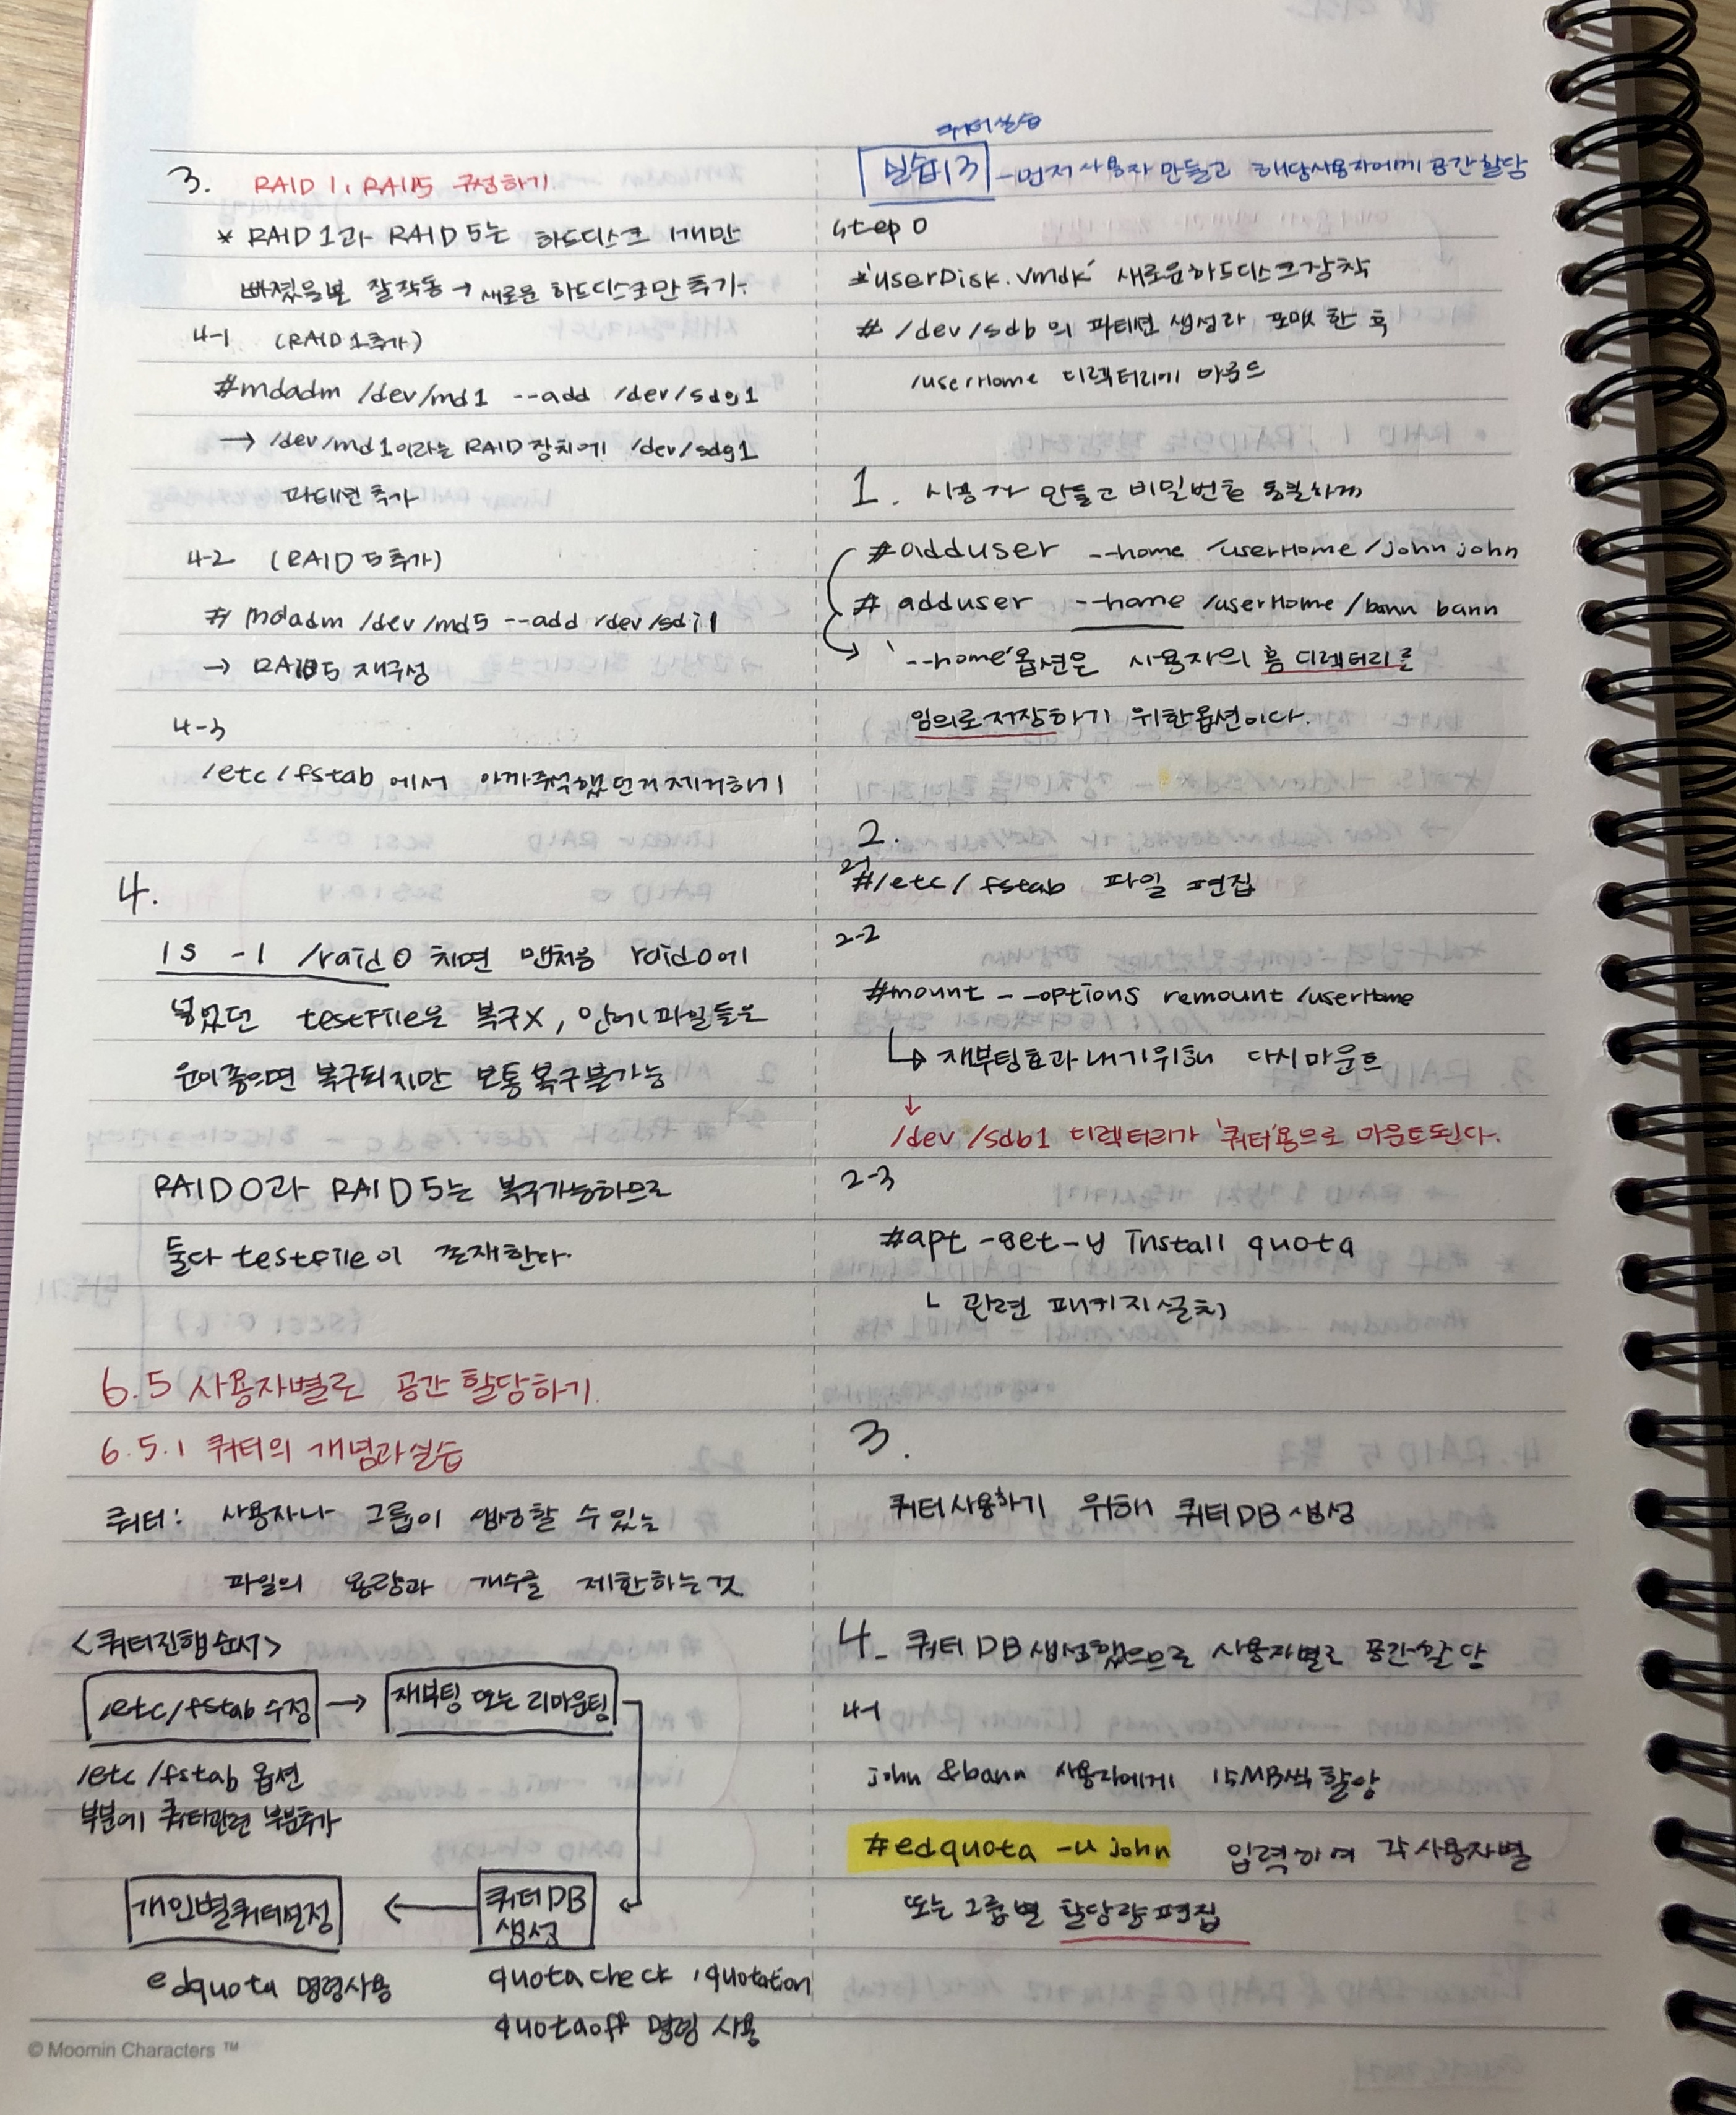 3. RAID 1, RAID5 구성하기
* RAID 1과 RAID 5는 하드디스크 1개만
빠졌을뿐 잘작동 → 새로운 하드디스크만 추가.
4-1 (RAID 1추가)
#mdadm /dev/md1 --add /dev/sdg1
→ /dev/md1이라는 RAID 장치에 /dev/sdg1
파티션 추가
4-2 (RAID 5추가)
# mdadm /dev/md5 --add /dev/sdi1
→ RAID5 재구성
4-3
/etc/fstab 에서 아까주석했던거 제거하기
4.
ls -l /raid0 치면 맨처음 raid0에
넣었던 testFile은 복구X, 안에 파일들은
운이좋으면 복구되지만 보통 복구불가능
RAID 0과 RAID 5는 복구가능하므로
둘다 testFile이 존재한다.
6.5 사용자별로 공간 할당하기
6.5.1 쿼터의 개념과실습
쿼터: 사용자나 그룹이 생성할 수 있는
파일의 용량과 개수를 제한하는것
<쿼터진행순서>
/etc/fstab 수정 → 재부팅 또는 리마운팅
/etc/fstab 옵션
부분에 쿼터관련 부분추가
개인별쿼터설정 ← 쿼터DB
생성
edquota 명령사용
quotacheck, quotation
quotaoff 명령 사용
쿼터실습
실습13 - 먼저 사용자 만들고 해당사용자에게 공간할당
step 0
*'userDisk.vmdk' 새로운하드디스크장착
# /dev/sdb의 파티션 생성과 포맷 한 후
/userHome 디렉터리에 마운트
1. 사용자 만들고 비밀번호 동일하게
#adduser --home /userHome/john john
# adduser --home /userHome/bann bann
'--home'옵션은 사용자의 홈 디렉터리를
임의로저장하기 위한옵션이다.
2.
#/etc/fstab 파일 편집
2-2
#mount --options remount /userHome
↳ 재부팅효과내기위해 다시마운트
↓
/dev/sdb1 디렉터리가 '쿼터'용으로 마운트된다.
2-3
#apt-get -y install quota
└ 관련 패키지설치
3.
쿼터사용하기 위해 쿼터DB 생성
4. 쿼터DB생성했으므로 사용자별로 공간할당
4-1
john &bann 사용자에게 15MB씩 할당
#edquota -u john 입력하여 각 사용자별
또는 그룹별 할당량편집
© Moomin Characters ™